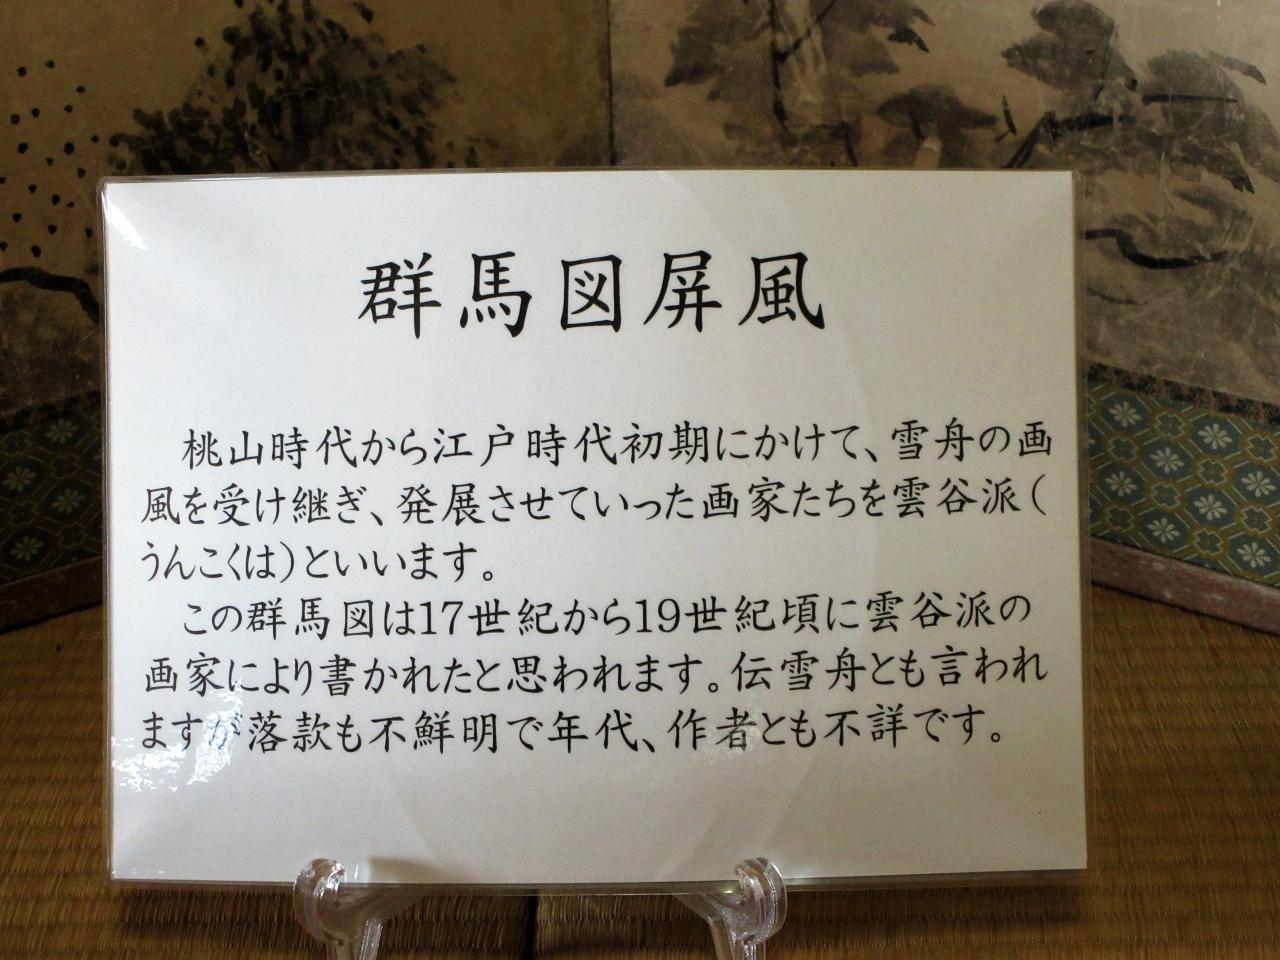 群馬図屏風
桃山時代から江戸時代初期にかけて、雪舟の画
風を受け継ぎ、発展させていった画家たちを雲谷派（
うんこくは）といいます。
この群馬図は17世紀から19世紀頃に雲谷派の
画家により書かれたと思われます。伝雪舟とも言われ
ますが落款も不鮮明で年代、作者とも不詳です。